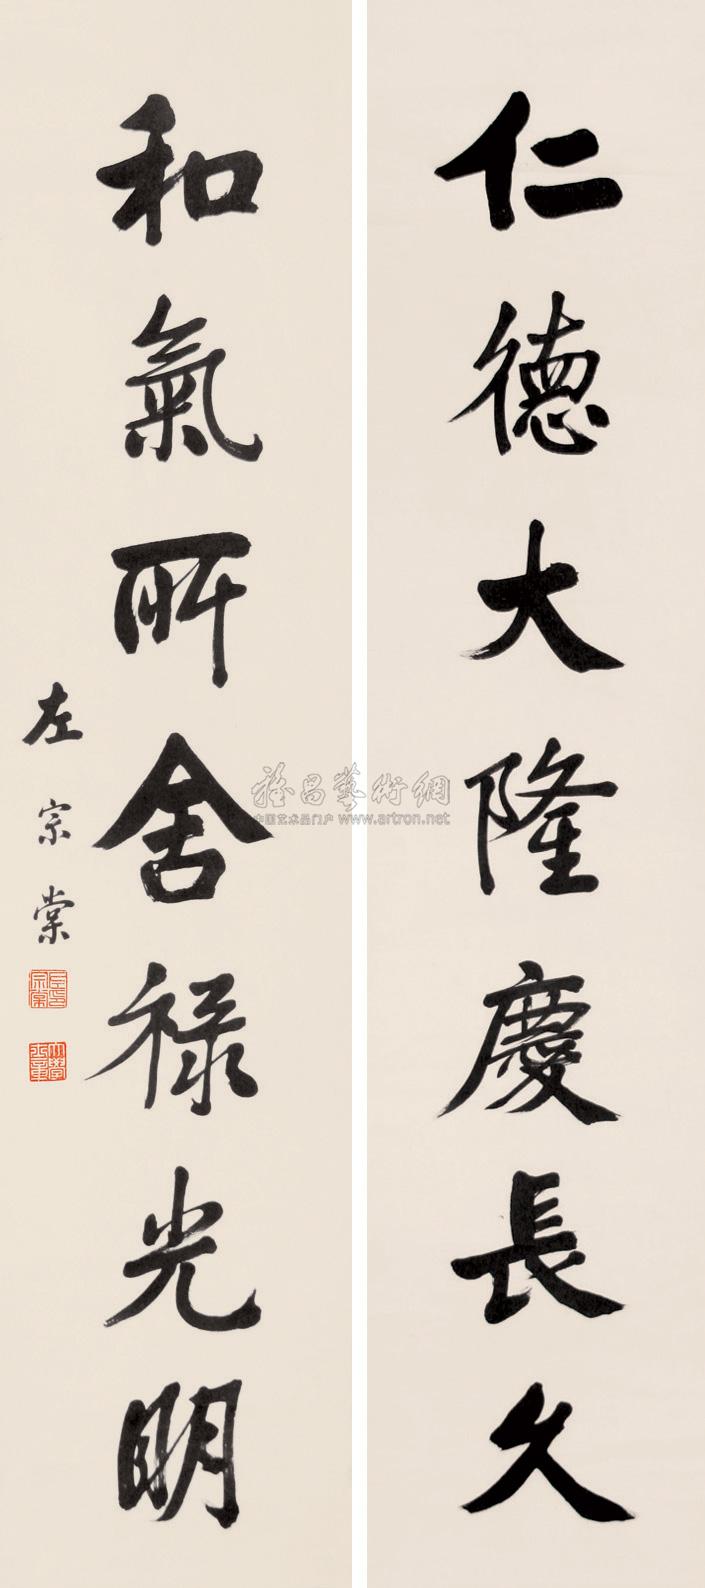 仁德大隆慶長久
和氣所舍禄光明
左宗棠
雅昌藝術網
中国艺术品门户 www.artron.net